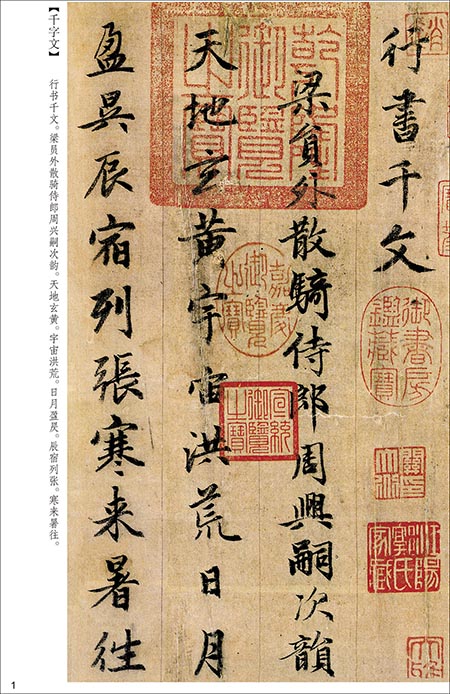 行書千文
梁貟外散騎侍郎周興嗣次韻
天地玄黄宇宙洪荒日月
盈昃辰宿列張寒来暑往
乾隆御覽之寶
嘉慶御覽之寶
宣統御覽之寶
御書房鑑藏寶
【千字文】
行书千文。梁员外散骑侍郎周兴嗣次韵。天地玄黄。宇宙洪荒。日月盈昃。辰宿列张。寒来暑往。
1